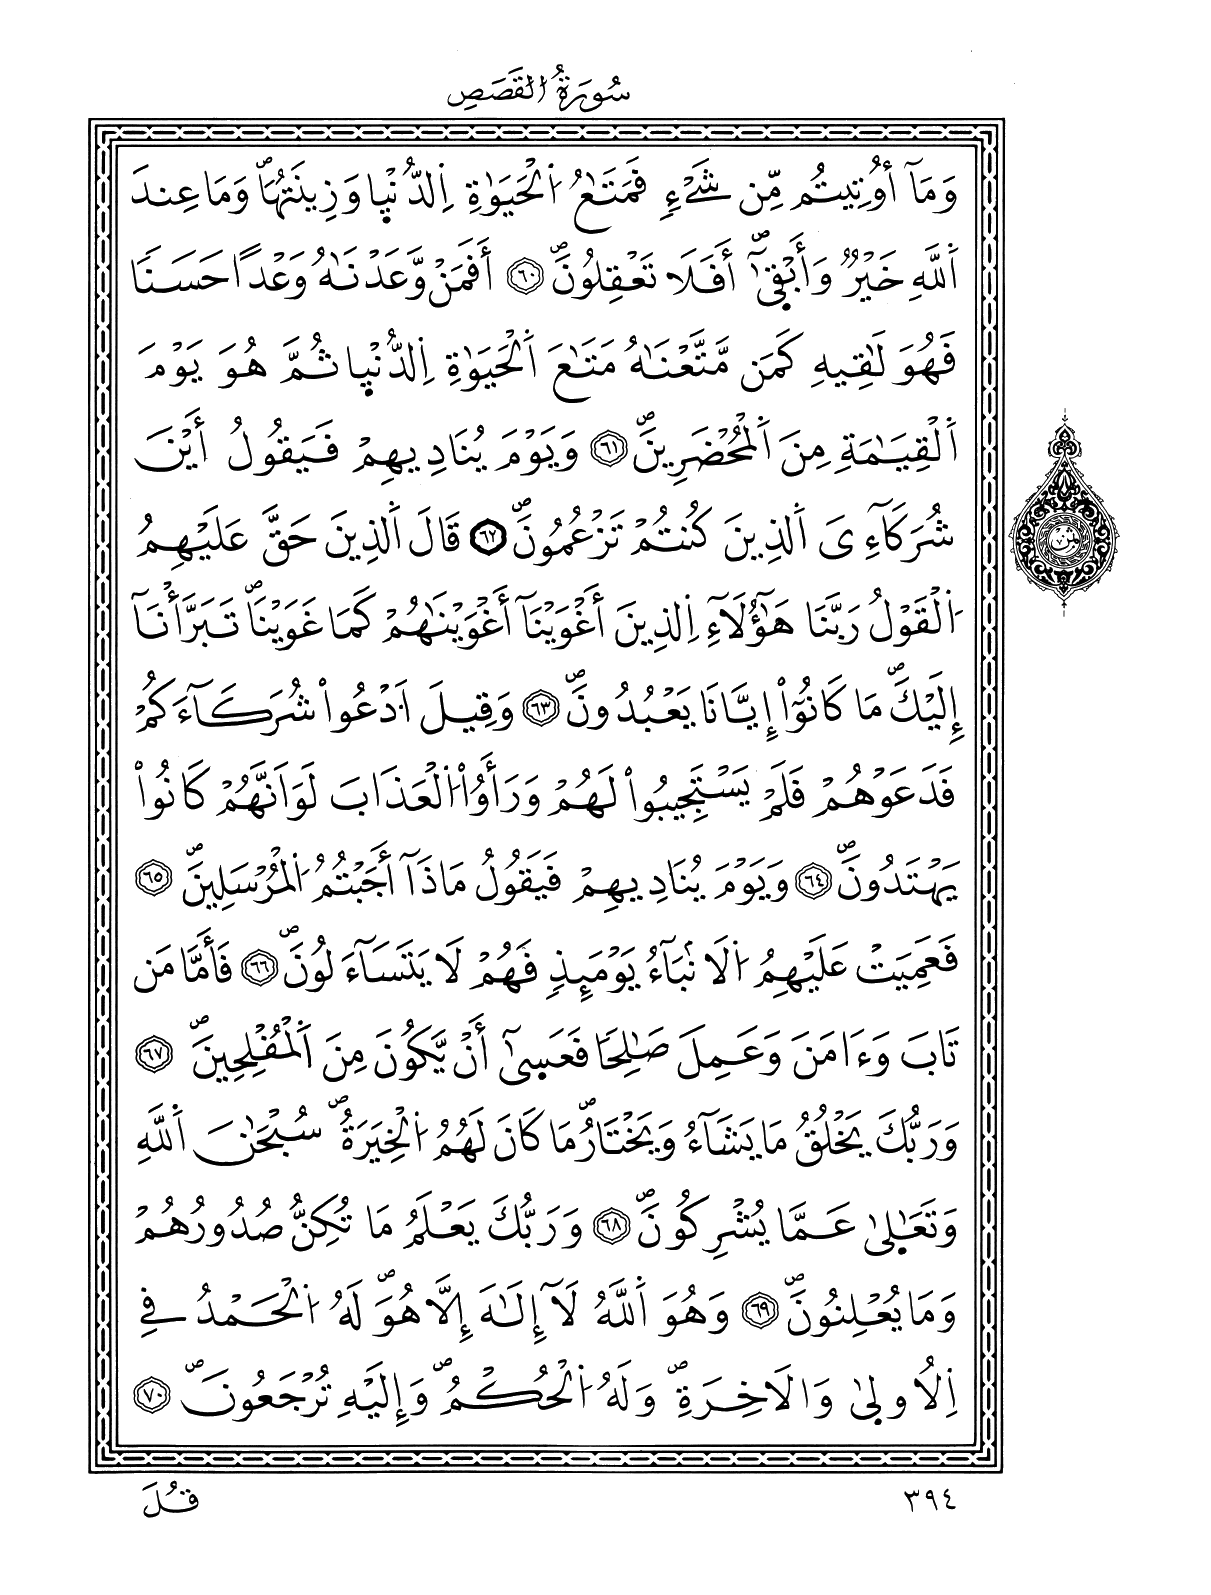 سُورَةُ الْقَصَصِ
وَمَآ أُوتِيتُم مِّن شَےْءٖ فَمَتَٰعُ اُ۬لْحَيَوٰةِ اِ۬لدُّنْي۪ا وَزِينَتُهَاۖ وَمَا عِندَ
اَ۬للَّهِ خَيْرٞ وَأَبْق۪ىٰٓۖ أَفَلَا تَعْقِلُونَۖ ۝٦٠ أَفَمَنْ وَّعَدْنَٰهُ وَعْداً حَسَنٗا
فَهُوَ لَٰقِيهِ كَمَن مَّتَّعْنَٰهُ مَتَٰعَ اَ۬لْحَيَوٰةِ اِ۬لدُّنْي۪ا ثُمَّ هُوَ يَوْمَ
اَ۬لْقِيَٰمَةِ مِنَ اَ۬لْمُحْضَرِينَۖ ۝٦١ وَيَوْمَ يُنَادِيهِمْ فَيَقُولُ أَيْنَ
شُرَكَآءِىَ اَ۬لذِينَ كُنتُمْ تَزْعُمُونَۖ ۝٦٢ قَالَ اَ۬لذِينَ حَقَّ عَلَيْهِمُ
اُ۬لْقَوْلُ رَبَّنَا هَٰٓؤُلَآءِ اِ۬لذِينَ أَغْوَيْنَآ أَغْوَيْنَٰهُمْ كَمَا غَوَيْنَاۖ تَبَرَّأْنَآ
إِلَيْكَۖ مَا كَانُوٓاْ إِيَّانَا يَعْبُدُونَۖ ۝٦٣ وَقِيلَ اَ۟دْعُواْ شُرَكَآءَكُمْ
فَدَعَوْهُمْ فَلَمْ يَسْتَجِيبُواْ لَهُمْ وَرَأَوُاْ اُ۬لْعَذَابَ لَوَ اَنَّهُمْ كَانُواْ
يَهْتَدُونَۖ ۝٦٤ وَيَوْمَ يُنَادِيهِمْ فَيَقُولُ مَاذَآ أَجَبْتُمُ اُ۬لْمُرْسَلِينَۖ ۝٦٥
فَعَمِيَتْ عَلَيْهِمُ اُ۬لَانۢبَآءُ يَوْمَئِذٖ فَهُمْ لَا يَتَسَآءَلُونَۖ ۝٦٦ فَأَمَّا مَن
تَابَ وَءَامَنَ وَعَمِلَ صَٰلِحاٗ فَعَس۪ىٰٓ أَنْ يَّكُونَ مِنَ اَ۬لْمُفْلِحِينَۖ ۝٦٧
وَرَبُّكَ يَخْلُقُ مَا يَشَآءُ وَيَخْتَارُۖ مَا كَانَ لَهُمُ اُ۬لْخِيَرَةُۖ سُبْحَٰنَ اَ۬للَّهِ
وَتَعَٰل۪ىٰ عَمَّا يُشْرِكُونَۖ ۝٦٨ وَرَبُّكَ يَعْلَمُ مَا تُكِنُّ صُدُورُهُمْ
وَمَا يُعْلِنُونَۖ ۝٦٩ وَهُوَ اَ۬للَّهُ لَآ إِلَٰهَ إِلَّا هُوَۖ لَهُ اُ۬لْحَمْدُ فِے
اِ۬لُاول۪ىٰ وَالَاخِرَةِۖ وَلَهُ اُ۬لْحُكْمُۖ وَإِلَيْهِ تُرْجَعُونَۖ ۝٧٠
ثمن
٣٩٤
قُلَ